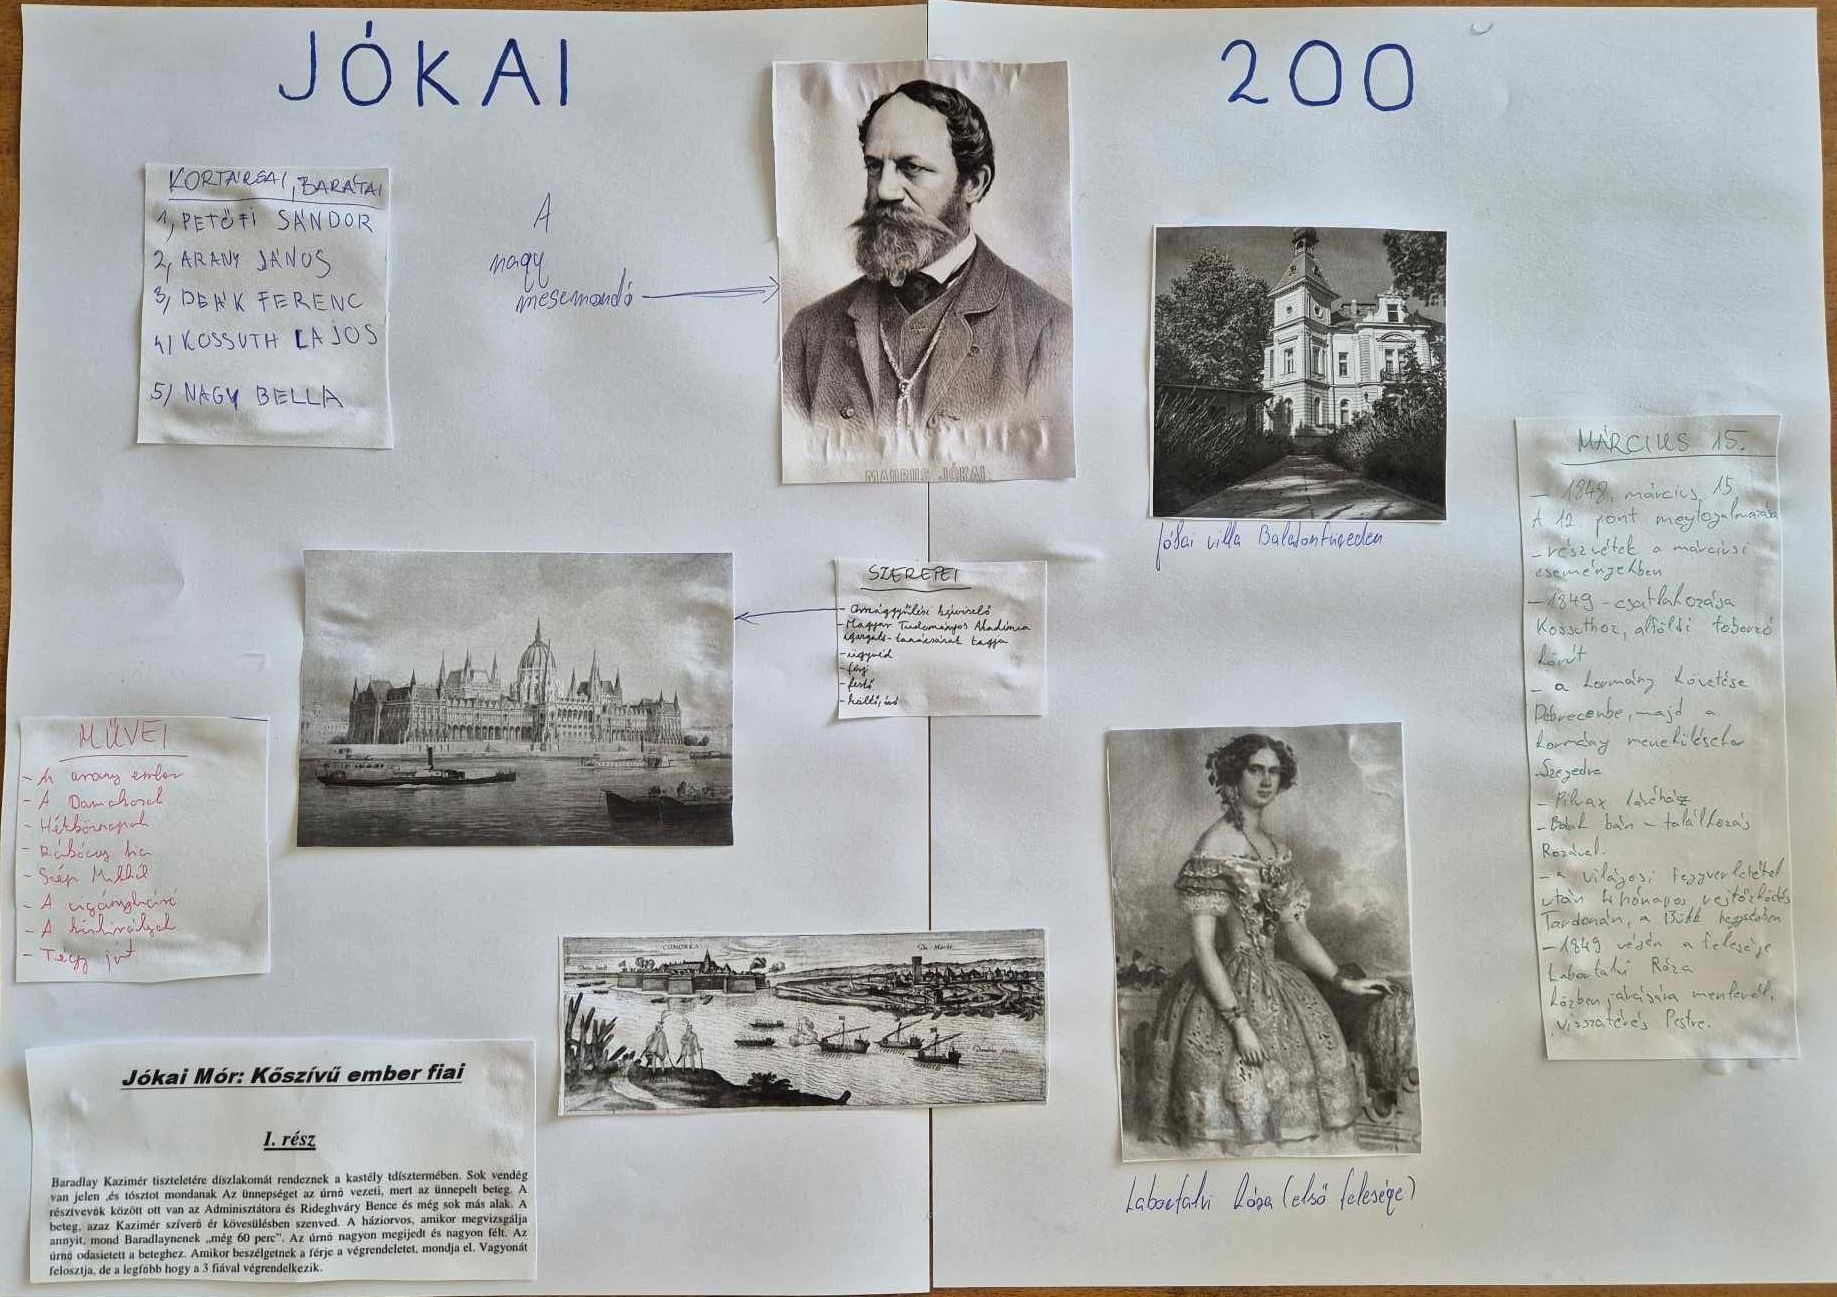 JÓKAI 200
KORTÁRSAI, BARÁTAI
1, PETŐFI SÁNDOR
2, ARANY JÁNOS
3, DEÁK FERENC
4, KOSSUTH LAJOS
5, NAGY BELLA
A
nagy
mesemondó
MAURUS JÓKAI
Jókai villa Balatonfüreden
MÁRCIUS 15.
- 1848. március 15.
A 12 pont megfogalmazása
- részvétek a márciusi
eseményekben
- 1849 - csatlakozása
Kossuthoz, alföldi toborzó
körút
- a kormány követése
Debrecenbe, majd a
kormány menekülésekor
Szegedre
- Pilvax kávéház
- Bánk bán - találkozás
Rózával.
- a világosi fegyverletétel
után 4 hónapos rejtőzködés
Tardonán, a Bükk hegységben
- 1849 végén a felesége
Laborfalvi Róza
közbenjárására menlevél,
visszatérés Pestre.
SZEREPEI
- Országgyűlési képviselő
- Magyar Tudományos Akadémia
igazgató-tanácsának tagja
- ügyvéd
- férj
- festő
- költő, író
MŰVEI
- Az arany ember
- A Damokosok
- Hétköznapok
- Rákóczy fia
- Szép Mikhál
- A cigánybáró
- A kiskirályok
- Tégy jót
COMORRA
Laborfalvi Róza (első felesége)
Jókai Mór: Kőszívű ember fiai
I. rész
Baradlay Kazimér tiszteletére díszlakomát rendeznek a kastély tdísztermében. Sok vendég
van jelen ,és tósztot mondanak Az ünnepséget az úrnő vezeti, mert az ünnepelt beteg. A
résztvevők között ott van az Adminisztátora és Rideghváry Bence és még sok más alak. A
beteg, azaz Kazimér szíverő ér kövesülésben szenved. A háziorvos, amikor megvizsgálja
annyit, mond Baradlaynenek „még 60 perc”. Az úrnő nagyon megijedt és nagyon félt. Az
úrnő odasietett a beteghez. Amikor beszélgetnek a férje a végrendeletet, mondja el. Vagyonát
felosztja, de a legfőbb hogy a 3 fiával végrendelkezik.